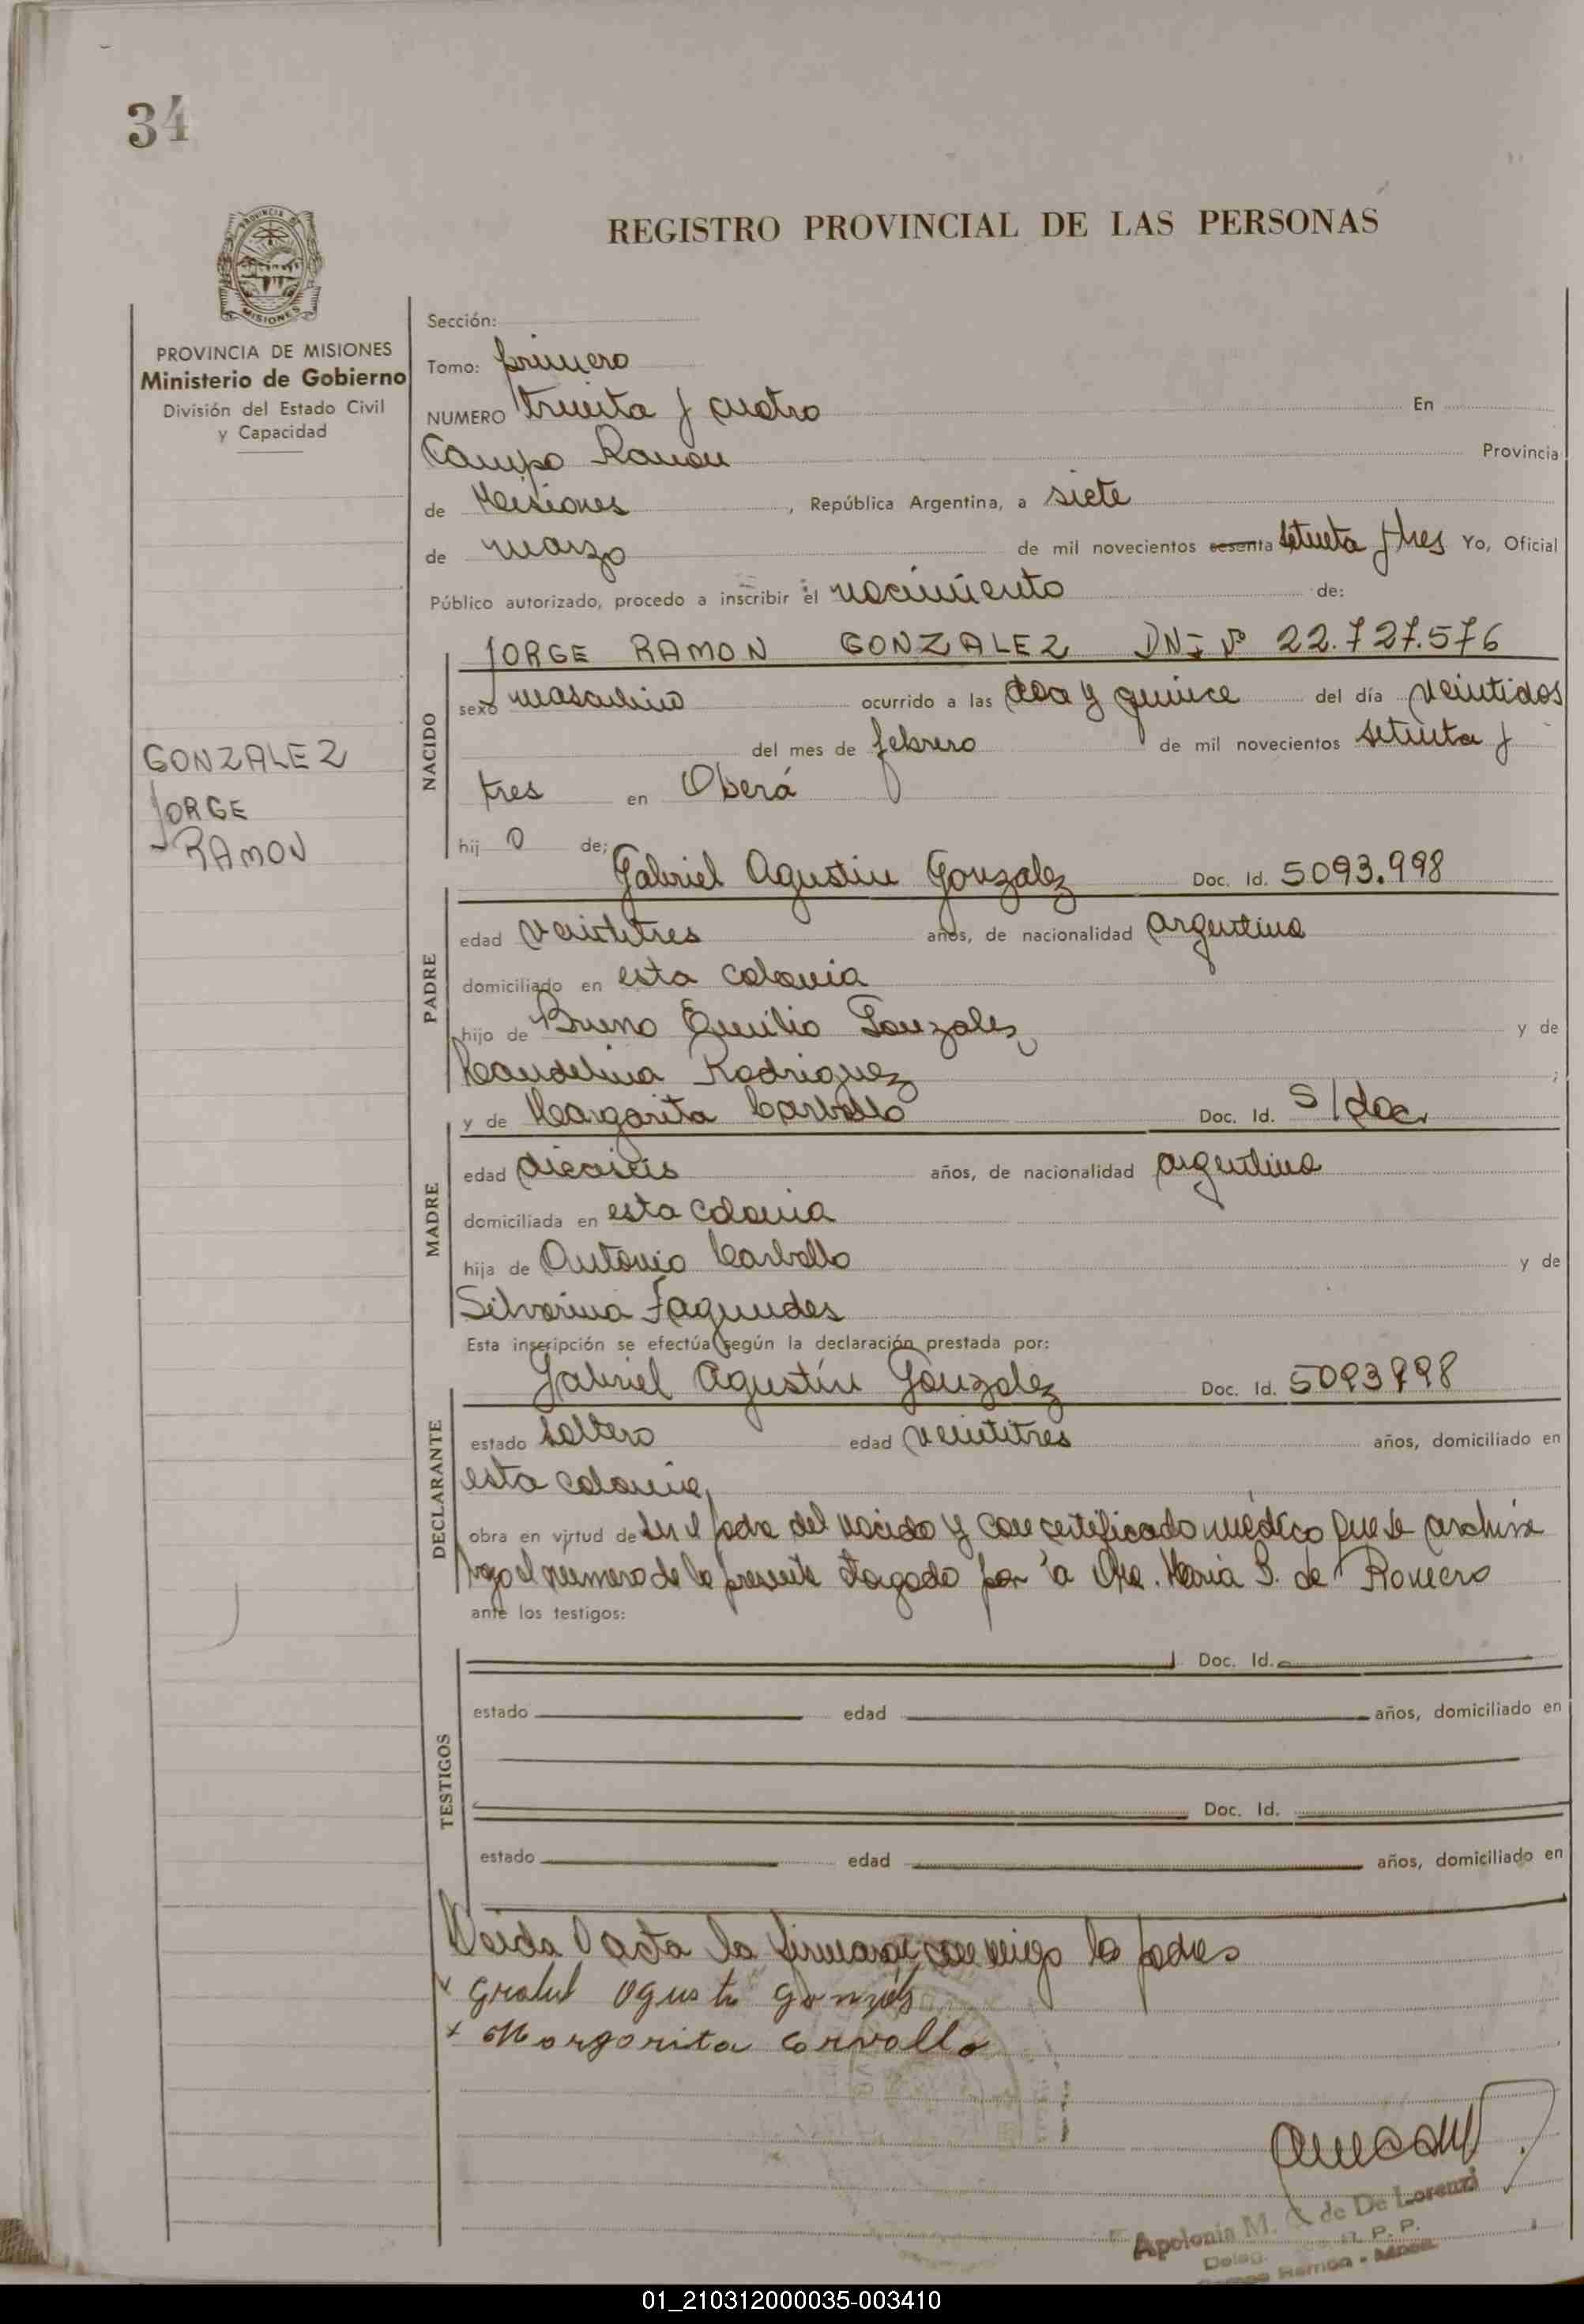 34
PROVINCIA DE
MISIONES
REGISTRO PROVINCIAL DE LAS PERSONAS
PROVINCIA DE MISIONES
Ministerio de Gobierno
División del Estado Civil
y Capacidad
GONZALEZ
JORGE
RAMON
Sección:
Tomo: primero
NUMERO treinta y cuatro En
Campo Ramon Provincia
de Misiones, República Argentina, a siete
de marzo de mil novecientos sesenta setenta y tres Yo, Oficial
Público autorizado, procedo a inscribir el nacimiento de:
JORGE RAMON GONZALEZ DNI Nº 22.727.576
NACIDO
sexo masculino ocurrido a las doa y quince del día veintidos
del mes de febrero de mil novecientos setenta y
tres en Oberá
hij o de;
Gabriel Agustin Gonzalez Doc. Id. 5093.998
PADRE
edad veintitres años, de nacionalidad argentina
domiciliado en esta colonia
hijo de Bruno Emilio Gonzalez y de
Candelina Rodriguez ;
y de Margarita Carballo Doc. Id. S/doc.
MADRE
edad dieciseis años, de nacionalidad argentina
domiciliada en esta colonia
hija de Antonio Carballo y de
Silverina Fagundes
Esta inscripción se efectúa según la declaración prestada por:
Gabriel Agustín Gonzalez Doc. Id. 5093998
DECLARANTE
estado soltero edad veintitres años, domiciliado en
esta colonia,
obra en virtud de ser el padre del nacido y con certificado médico que se archiva
bajo el numero de la presente otorgado por la Dra. Maria B. de Romero
ante los testigos:
TESTIGOS
Doc. Id.
estado edad años, domiciliado en
Doc. Id.
estado edad años, domiciliado en
Leida acta la firmaran conmigo los padres
x Margarita Carvallo
Apolonia M. de De Lorenzi
Deleg. R. P. P.
Campo Ramon - Mnes.
01_210312000035-003410